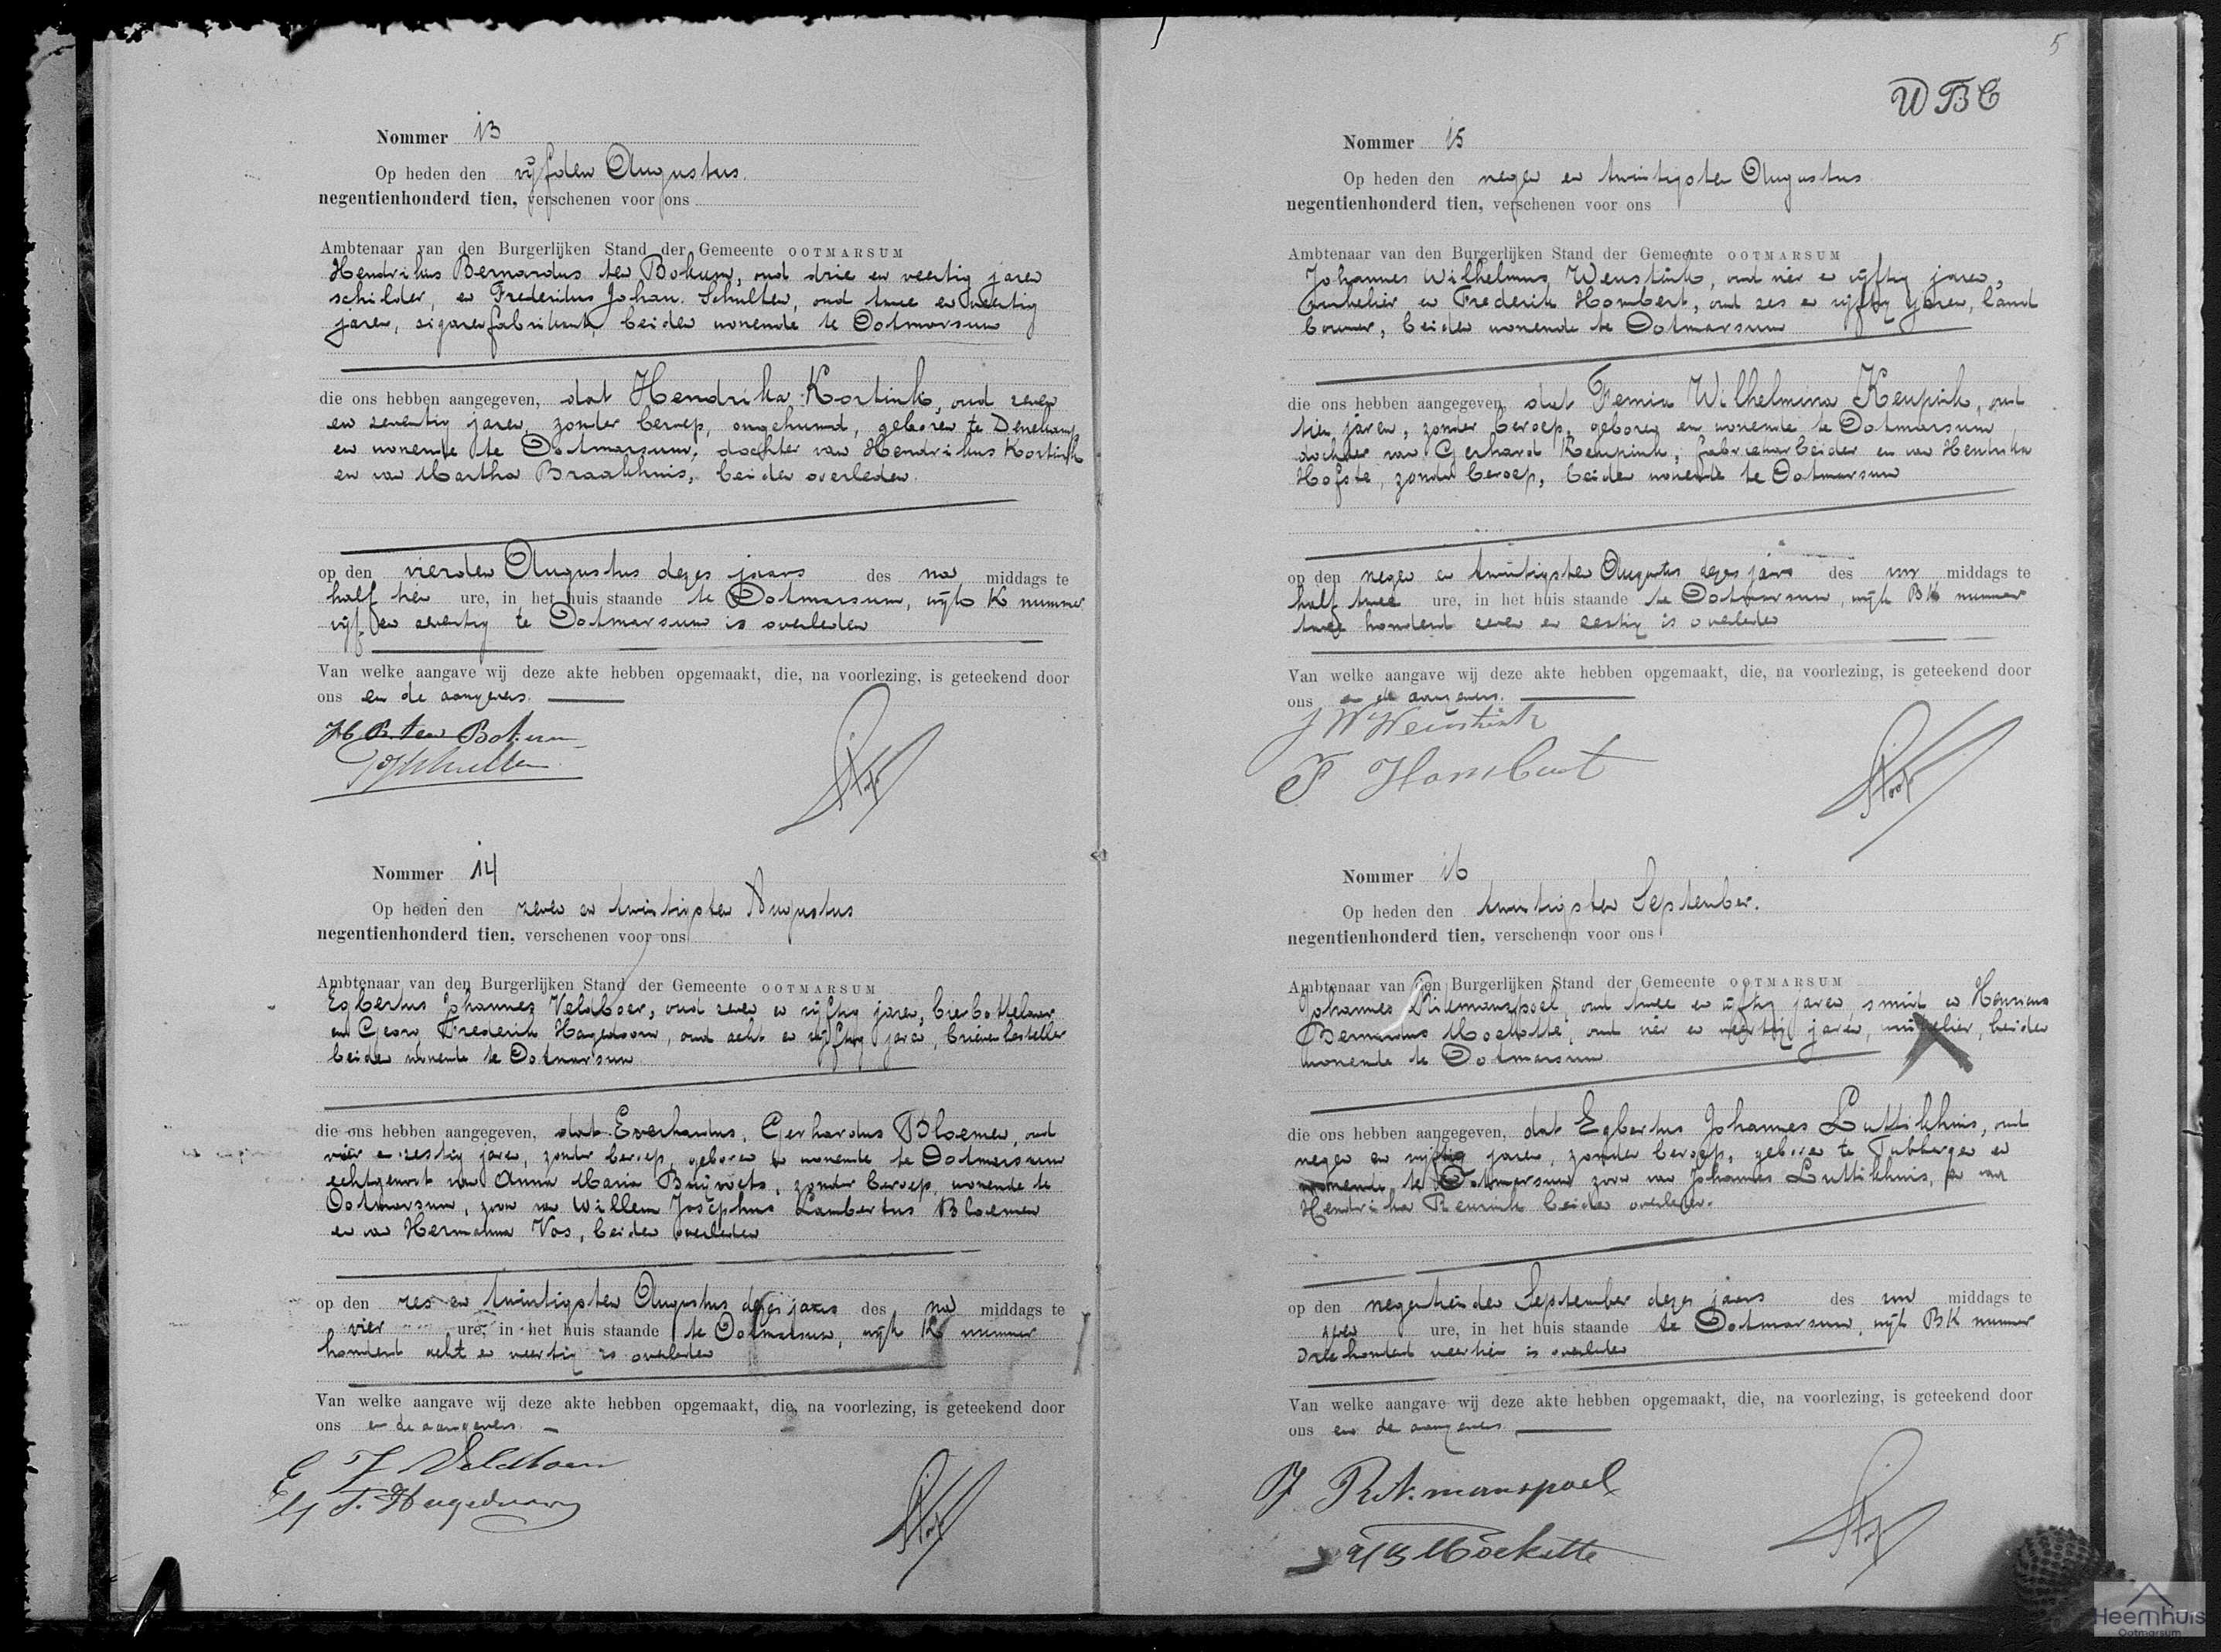 Nommer 13
Op heden den vijfden Augustus.
negentienhonderd tien, verschenen voor ons
Ambtenaar van den Burgerlijken Stand der Gemeente OOTMARSUM
Hendrikus Bernardus ten Bokum, oud drie en veertig jaren
schilder, en Frederikus Johan. Schulten, oud twee en veertig
jaren, sigarenfabrikant, beiden wonende te Ootmarsum
die ons hebben aangegeven, dat Hendrika Kortink, oud zeven
en zeventig jaren, zonder beroep, ongehuwd, geboren te Denekamp
en wonende te Ootmarsum, dochter van Hendrikus Kortink
en van Martha Braakhuis, beiden overleden.
op den vierden Augustus dezes jaars des na middags te
half tien ure, in het huis staande te Ootmarsum, wijk K nummer
vijf en zeventig te Ootmarsum is overleden
Van welke aangave wij deze akte hebben opgemaakt, die, na voorlezing, is geteekend door
ons en de aangevers.
H B. ten Bokum
Schulten
Nommer 14
Op heden den zeven en twintigsten Augustus
negentienhonderd tien, verschenen voor ons
Ambtenaar van den Burgerlijken Stand der Gemeente OOTMARSUM
Egbertus Johannes Veldboer, oud zeven en vijftig jaren, bierbottelaar
en Georg Frederik Hagedoorn, oud acht en vijftig jaren, brievenbesteller
beiden wonende te Ootmarsum
die ons hebben aangegeven, dat Everhardus, Gerhardus Bloemen, oud
vier en zestig jaren, zonder beroep, geboren en wonende te Ootmarsum
echtgenoot van Anna Maria Buijvoets, zonder beroep, wonende te
Ootmarsum, zoon van Willem Josephus Lambertus Bloemen
en van Hermanna Vos, beiden overleden
op den zes en twintigsten Augustus dezes jaars des na middags te
vier ure, in het huis staande te Ootmarsum, wijk K nummer
honderd acht en veertig is overleden
Van welke aangave wij deze akte hebben opgemaakt, die, na voorlezing, is geteekend door
ons en de aangevers.
E J Veldboer
G F. Hagedoorn
5
WBC
Nommer 15
Op heden den negen en twintigsten Augustus
negentienhonderd tien, verschenen voor ons
Ambtenaar van den Burgerlijken Stand der Gemeente OOTMARSUM
Johannes Wilhelmus Wenstink, oud vier en vijftig jaren,
en Frederik Hombert, oud zes en vijftig jaren, land
bouwer, beiden wonende te Ootmarsum
die ons hebben aangegeven, dat Femia Wilhelmina Keupink, oud
tien jaren, zonder beroep, geboren en wonende te Ootmarsum
dochter van Gerhard Keupink, fabriekarbeider en van Hendrika
Hofste, zonder beroep, beiden wonende te Ootmarsum
op den negen en twintigsten Augustus dezes jaars des voor middags te
half twee ure, in het huis staande te Ootmarsum, wijk BK nummer
twee honderd zeven en zestig is overleden
Van welke aangave wij deze akte hebben opgemaakt, die, na voorlezing, is geteekend door
ons en de aangevers.
J W Wenstink
F Hombert
Nommer 16
Op heden den twintigsten September.
negentienhonderd tien, verschenen voor ons
Ambtenaar van den Burgerlijken Stand der Gemeente OOTMARSUM
Johannes Ritmanspoel, oud twee en vijftig jaren, smid en Hermanus
Bernardus Mockotte, oud vier en veertig jaren, winkelier, beiden
wonende te Ootmarsum
die ons hebben aangegeven, dat Egbertus Johannes Luttikhuis, oud
negen en vijftig jaren, zonder beroep, geboren te Tubbergen en
wonende te Ootmarsum zoon van Johannes Luttikhuis, en van
Hendrika Reurink beiden overleden.
op den negentienden September dezes jaars des voor middags te
zeven ure, in het huis staande te Ootmarsum, wijk BK nummer
drie honderd veertien is overleden
Van welke aangave wij deze akte hebben opgemaakt, die, na voorlezing, is geteekend door
ons en de aangevers.
J Ritmanspoel
HB Mockotte
Heemhuis
Ootmarsum